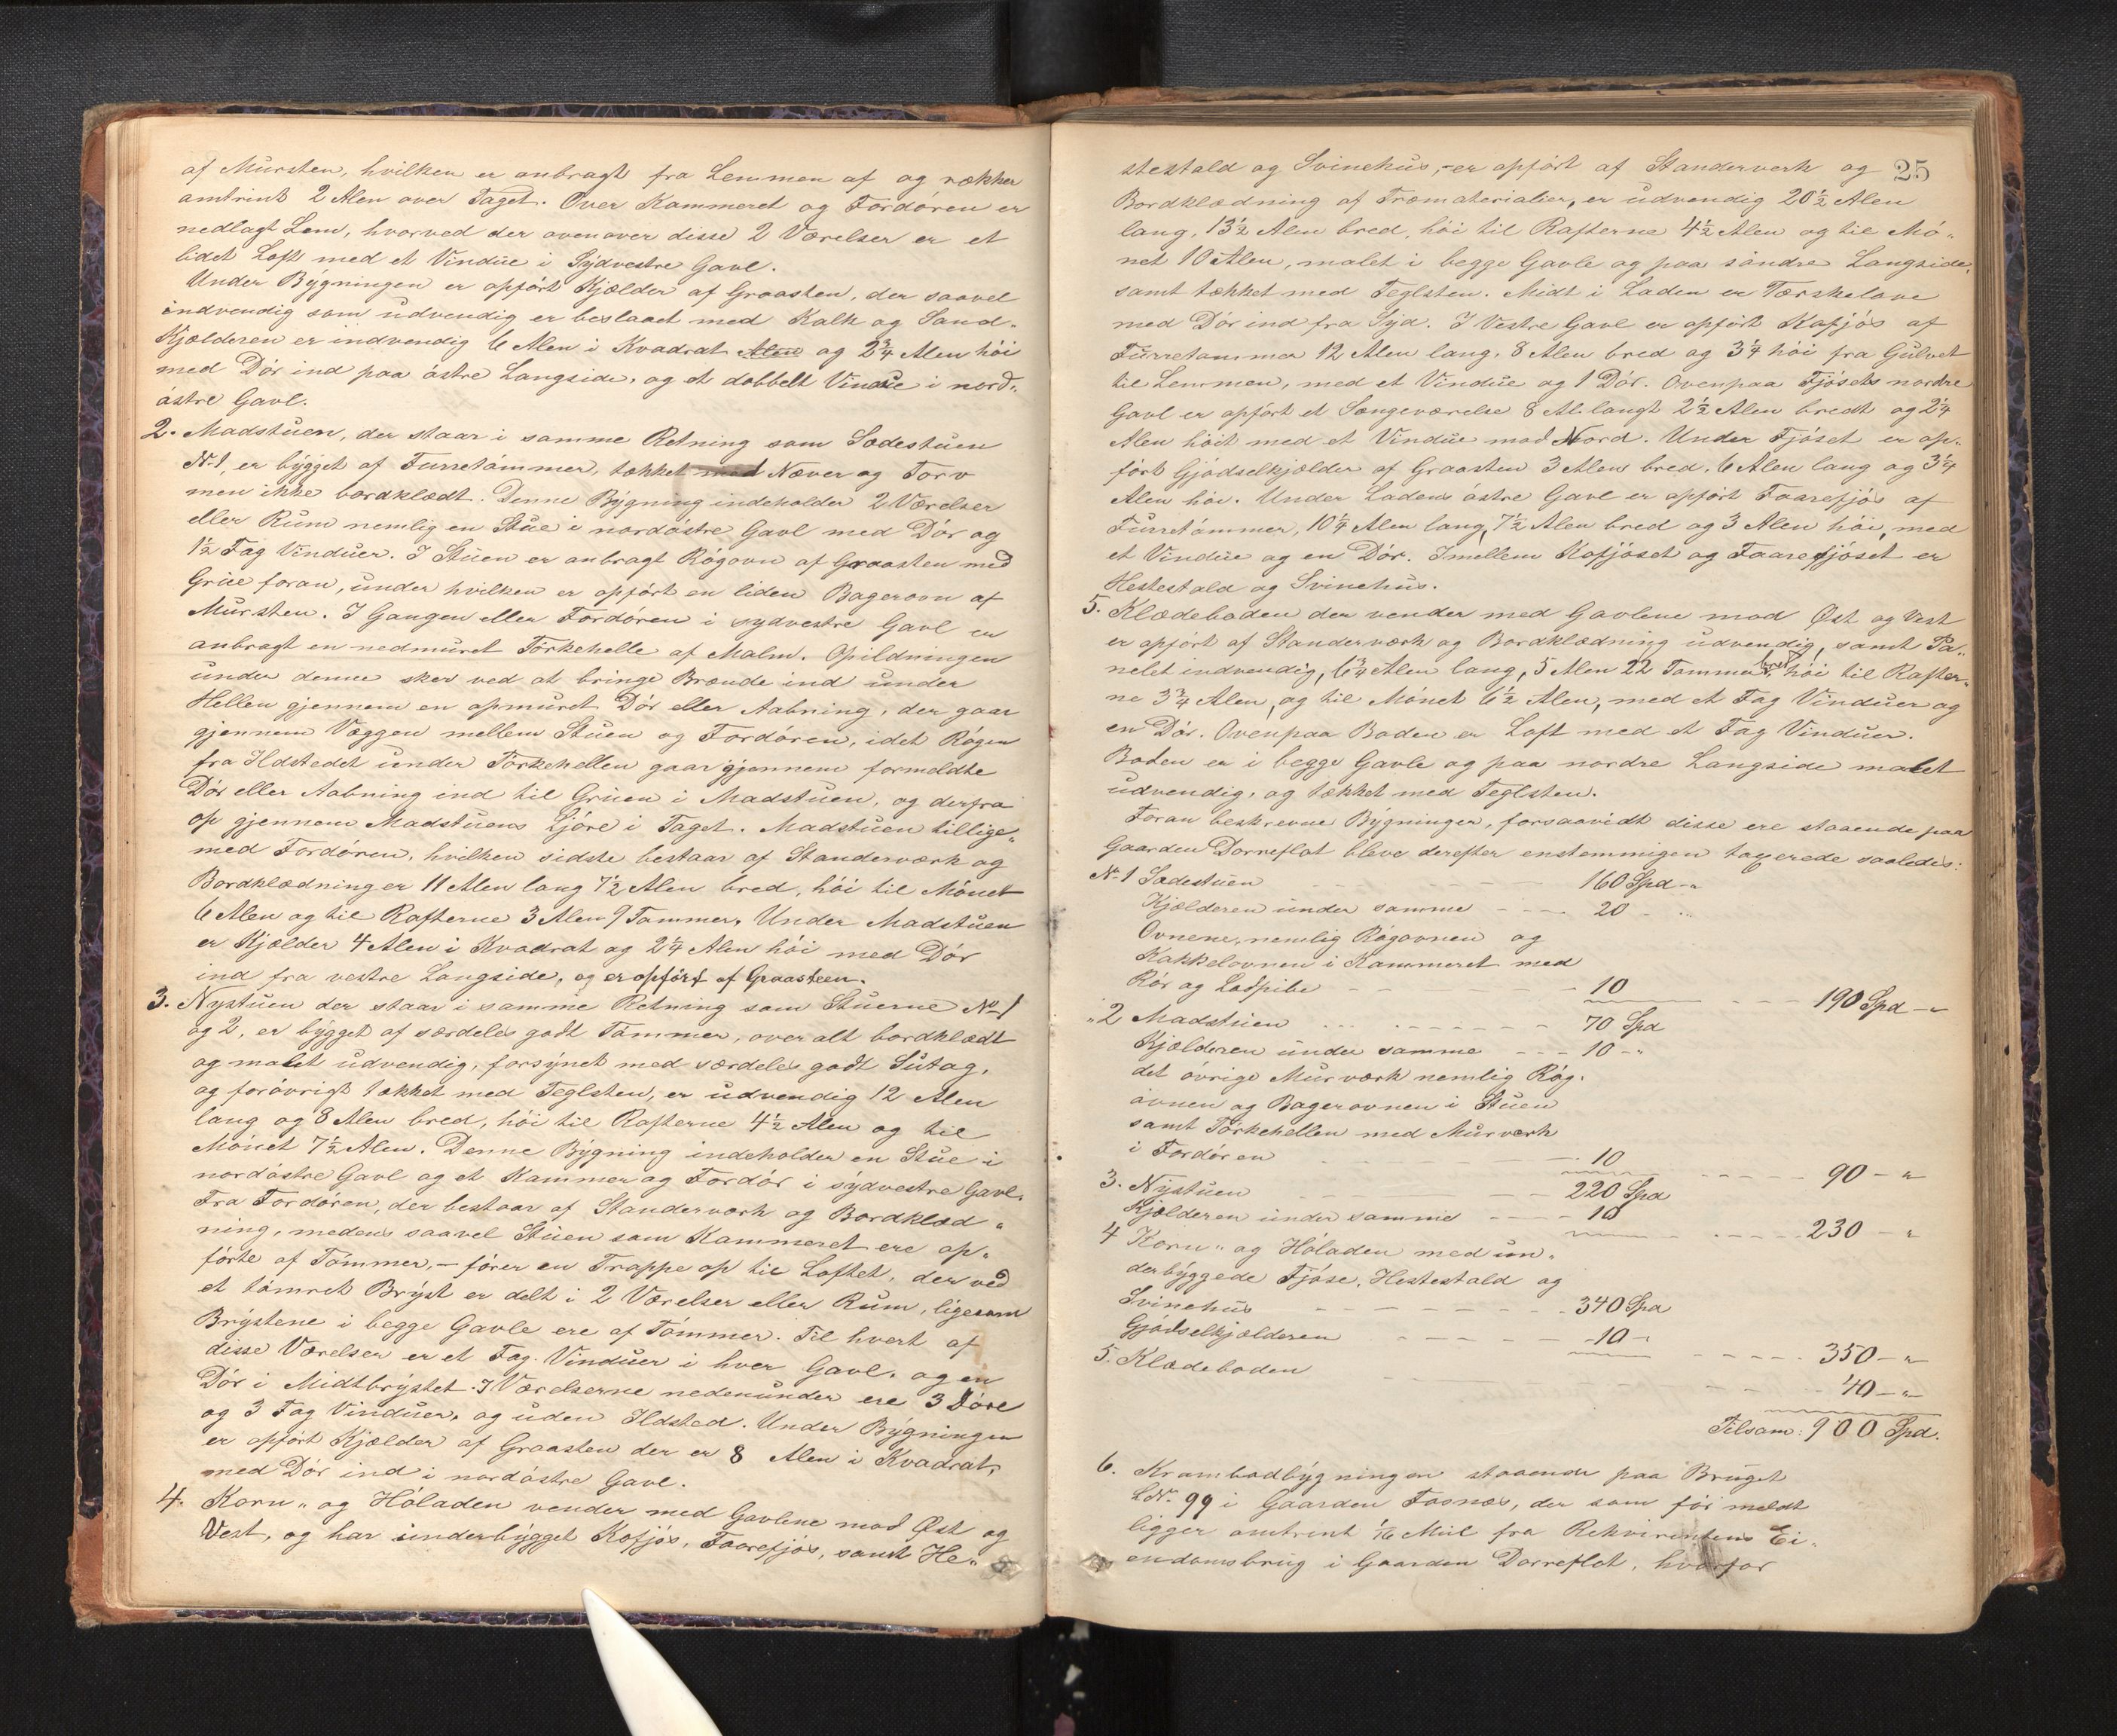 af Mursten, hvilken er anbragt fra Lemmen af og rækker
amtrint 2 Alen over Taget. Over Kammeret og Fordøren er
nedlagt Lem, hvorved der ovenover disse 2 Værelser er et
lidet Loft med et Vindue i Sydvestre Gavl.
Under Bygningen er opført Kjælder af Graasten, der saavel
indvendig som udvendig er beslaaet med Kalk og Sand.
Kjælderen er indvendig 6 Alen i Kvadrat Alen og 2¾ Alen høi
med Dør ind paa østre Langside, og et dobbelt Vindue i nord-
østre Gavl.
2. Madstuen, der staar i samme Retning som Sædestuen
No 1, er bygget af Furretømmer, tækket med Næver og Torv
men ikke bordklædt. Denne Bygning indeholder 2 Værelser
eller Rum nemlig en Stue i nordøstre Gavl med Dør og
1½ Fag Vinduer. I Stuen er anbragt Røgovn af Graasten med
Grue foran, under hvilken er opført en liden Bagerovn af
Mursten. I Gangen eller Fordøren i sydvestre Gavl er
anbragt en nedmuret Tørkehelle af Malm. Opildningen
under denne sker ved at bringe Brænde ind under
Hellen gjennem en opmuret Dør eller Aabning, der gaar
gjennem Væggen mellem Stuen og Fordøren, idet Røgen
fra Ildstedet under Tørkehellen gaar gjennem formeldte
Dør eller Aabning ind til Gruen i Madstuen, og derfra
op gjennem Madstuens Ljøre i Taget. Madstuen tillige-
med Fordøren, hvilken sidste bestaar af Standerværk og
Bordklædning er 11 Alen lang 7½ Alen bred, høi til Mønet
6 Alen og til Rafterne 3 Alen 9 Tommer. Under Madstuen
er Kjælder 4 Alen i Kvadrat og 2¼ Alen høi med Dør
ind fra vestre Langside, og er opført af Graasteen.
3. Nystuen der staar i samme Retning som Stuerne No 1
og 2, er bygget af særdeles godt Tømmer, overalt bordklædt
og malet udvendig, forsynet med særdeles godt Sutag,
og forøvrigt tækket med Teglsten, er udvendig 12 Alen
lang og 8 Alen bred, høi til Rafterne 4½ Alen og til
Mønet 7½ Alen. Denne Bygning indeholder en Stue i
nordøstre Gavl og et Kammer og Fordør i sydvestre Gavl.
Fra Fordøren, der bestaar af Standerværk og Bordklæd-
ning, medens saavel Stuen som Kammeret ere op-
førte af Tømmer, – fører en Trappe op til Loftet, der ved
et tømret Bryst er delt i 2 Værelser eller Rum, ligesom
Brystene i begge Gavle ere af Tømmer. Til hvert af
disse Værelser er et Fag Vinduer i hver Gavl, og en
Dør i Midtbrystet. I Værelserne nedenunder ere 3 Døre
og 3 Fag Vinduer, og uden Ildsted. Under Bygningen
er opført Kjælder af Graasten der er 8 Alen i Kvadrat,
med Dør ind i nordøstre Gavl.
4. Korn- og Høladen vender med Gavlene mod Øst og
Vest, og har underbygget Kofjøs, Faarefjøs, samt He-
25
stestald og Svinehus, – er opført af Standerverk og
Bordklædning af Træmaterialier, er udvendig 20½ Alen
lang, 13½ Alen bred, høi til Rafterne 4½ Alen og til Mø-
net 10 Alen, malet i begge Gavle og paa søndre Langside,
samt tækket med Teglsten. Midt i Laden er Tærskelove
med Dør ind fra Syd. I Vestre Gavl er opført Kofjøs af
Furretømmer 12 Alen lang, 8 Alen bred og 3¼ høi fra Gulvet
til Lemmen, med et Vindue og 1 Dør. Ovenpaa Fjøsets nordre
Gavl er opført et Sængeværelse 8 Al. langt 2½ Alen bredt og 2¼
Alen høit med et Vindue mod Nord. Under Fjøset er op-
ført Gjødselkjælder af Graasten 3 Alen bred, 6 Alen lang og 3¼
Alen høi. Under Ladens østre Gavl er opført Faarefjøs af
Furretømmer, 10¼ Alen lang, 7½ Alen bred og 3 Alen høi, med
et Vindue og en Dør. Imellem Kofjøset og Faarefjøset er
Hestestald og Svinehus.
5. Klædeboden der vender med Gavlene mod Øst og Vest
er opført af Standerværk og Bordklædning udvendig, samt Pa-
nelet indvendig, 6¾ Alen lang, 5 Alen 22 Tommer bred, høi til Rafter-
ne 3¾ Alen, og til Mønet 6½ Alen, med et Fag Vinduer og
en Dør. Ovenpaa Boden er Loft med et Fag Vinduer.
Boden er i begge Gavle og paa nordre Langside malet
udvendig, og tækket med Teglsten.
Foran beskrevne Bygninger, forsaavidt disse ere staaende paa
Gaarden Dorreflot bleve derefter enstemmigen taxerede saaledes:
No 1 Sædestuen 160 Spd - "
Kjælderen under samme 20 - "
Ovnene, nemlig Røgovnen og
Kakkelovnen i Kammeret med
Rør og Ladpibe 10 190 Spd - "
" 2 Madstuen 70 Spd
Kjælderen under samme 10 - "
det øvrige Murværk nemlig Røg-
ovnen og Bagerovnen i Stuen
samt Tørkehellen med Murværk
i Fordøren 10 90 - "
3. Nystuen 220 Spd
Kjælderen under samme 10 230 - "
4 Korn- og Høladen med un-
derbyggede Fjøse, Hestestald og
Svinehus 340 Spd
Gjødselkjælderen 10 - 350 - "
5. Klædeboden 40 - "
Tilsam: 900 Spd.
6. Krambodbygningen staaende paa Bruget
LNr. 99 i Gaarden Fosnæs, der som før meldt
ligger omtrent 1/16 Miil fra Rekvirentens Ei-
endomsbrug i Gaarden Dorreflot, hvorfor